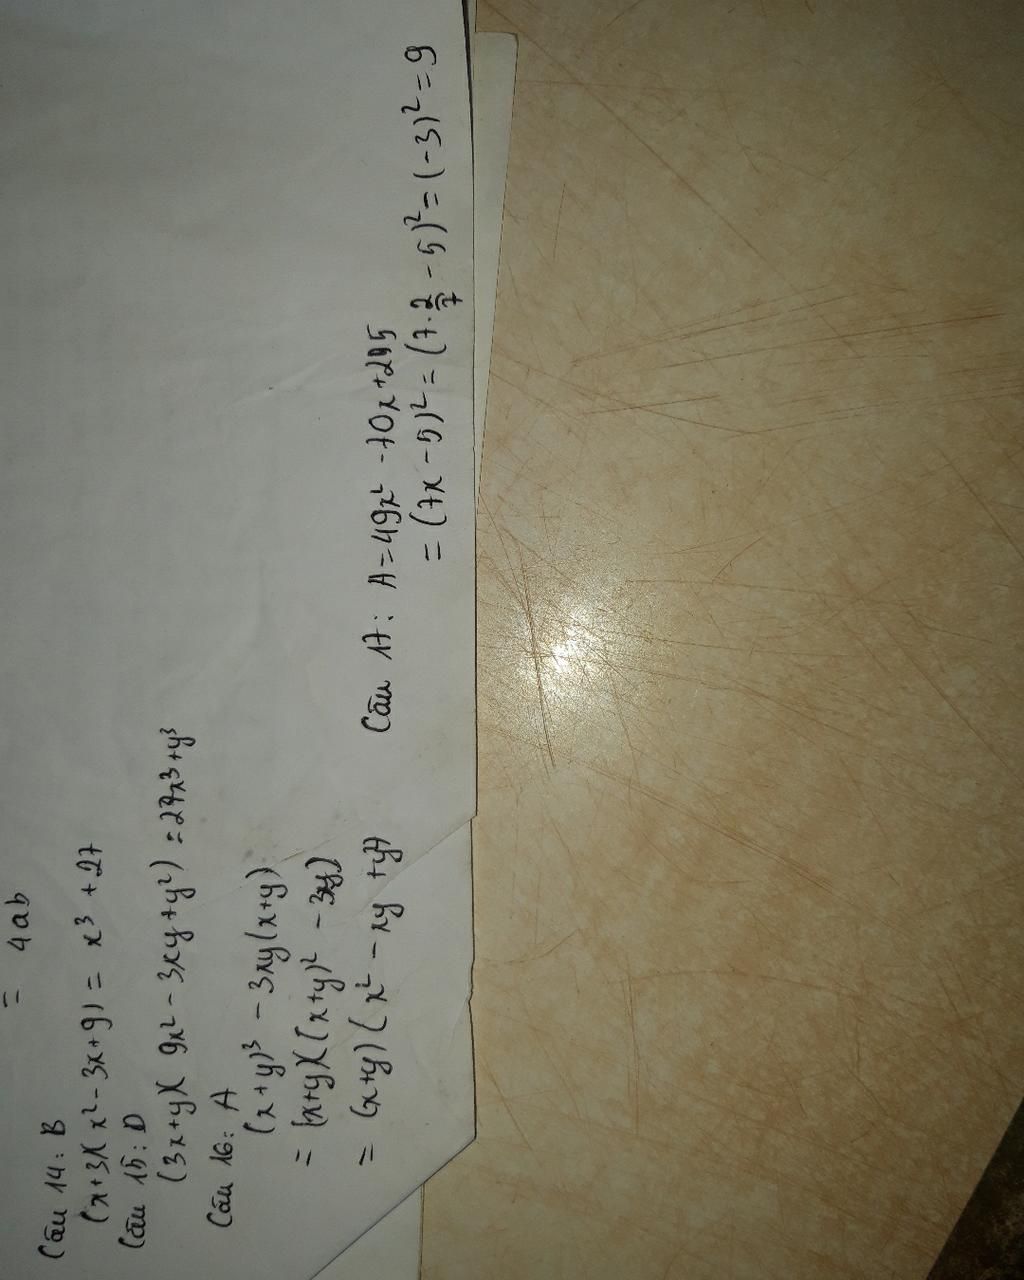 = 4ab
Câu 14: B
(x+3)(x² - 3x + 9) = x³ + 27
Câu 15: D
(3x+y)(9x² - 3xy + y²) = 27x³ + y³
Câu 16: A
(x+y)³ - 3xy(x+y)
= (x+y)((x+y)² - 3xy)
= (x+y)(x² - xy + y²)
Câu 17: A = 49x² - 70x + 295
= (7x - 5)² = (7.2/7 - 5)² = (-3)² = 9